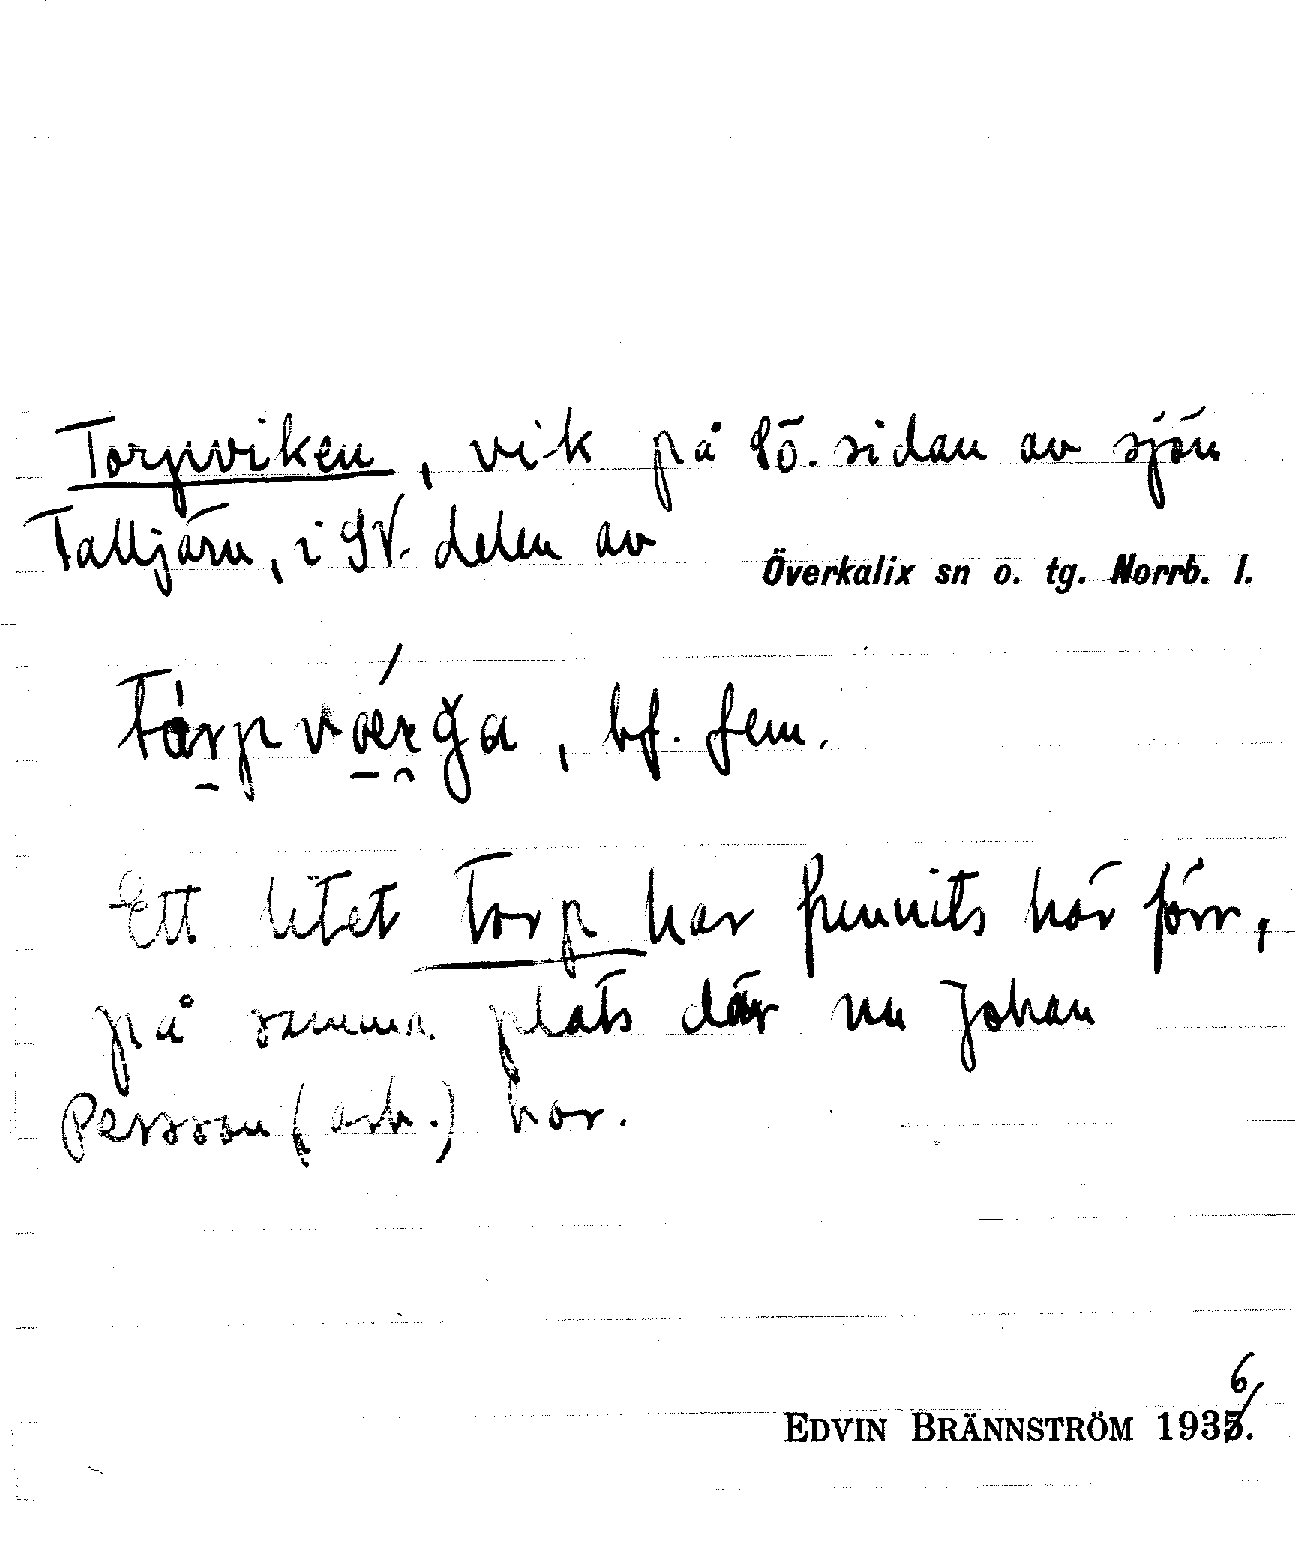 Torpviken, vik på Sö. sidan av sjön
Talljärn, i SV. delen av
Överkalix sn o. tg. Norrb. l.
, bf. fem.
Ett litet Torp har funnits här förr,
på samma plats där nu Johan
Persson (arb.) bor.
6
EDVIN BRÄNNSTRÖM 1935.